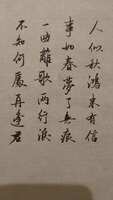 人似秋鴻来有信
事如春夢了無痕
一曲離歌兩行淚
不知何處再逢君